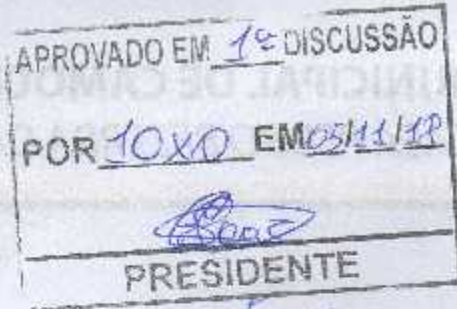 APROVADO EM 1ª DISCUSSÃO
POR 10X0 EM 05/11/18
PRESIDENTE